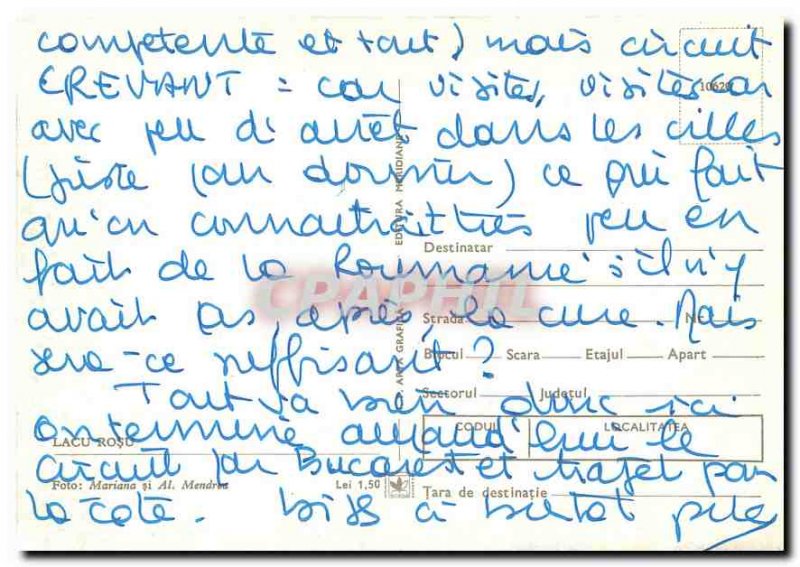 compétente et tout) mais circuit
CREVANT = car visites, visites car
avec peu d'arrêt dans les villes
(juste pour dormir) ce qui fait
qu'on connaitrait très peu en
fait de la Roumanie s'il n'y
avait pas, après, la cure. Mais
sera-ce suffisant?
Tout va bien donc ici
on termine aujourd'hui le
circuit par Bucarest et trajet par
la côte. bises à bientôt
10620
EDITURA MERIDIANE
C.P. ARTA GRAFICA
Destinatar
Strada Nr.
Blocul Scara Etajul Apart
Sectorul Județul
CODUL LOCALITATEA
Țara de destinație
LACU ROȘU
Foto: Mariana și Al. Mendrea
Lei 1,50
CPAPHIL